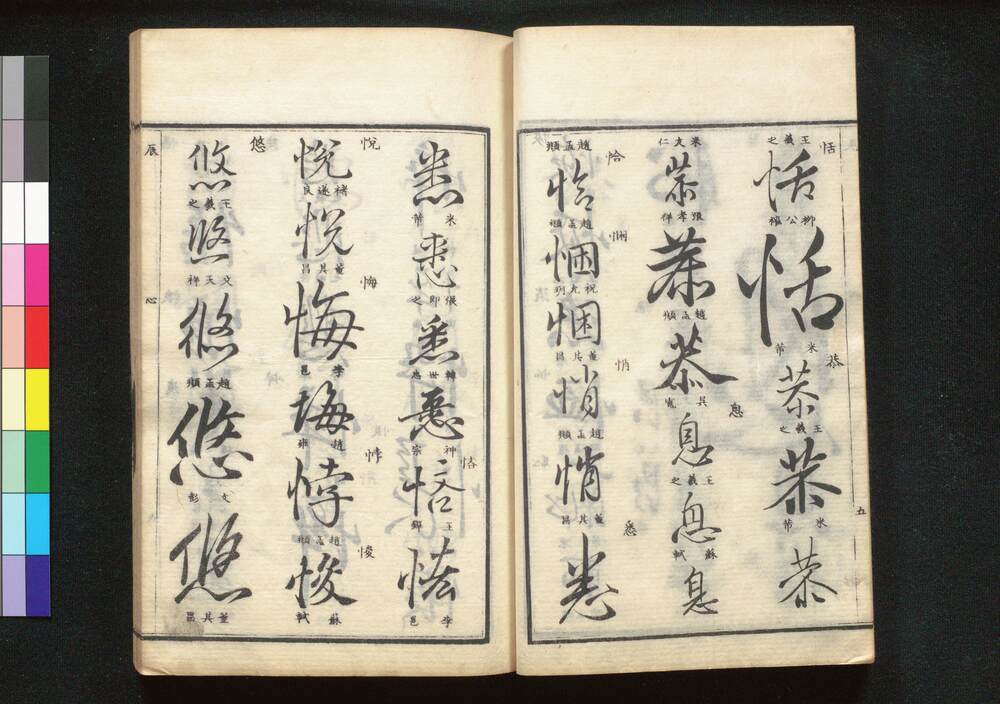 恬
王羲之
恬
柳公權
恬
恭
米芾
恭
王羲之
恭
米芾
恭
五
米友仁
恭
張孝祥
恭
趙孟頫
恭
吳寬
息
息
王羲之
息
蘇軾
息
趙孟頫
恰
恰
趙孟頫
悃
悃
祝允明
悃
董其昌
悄
悄
趙孟頫
悄
董其昌
悉
悉
悉
米芾
悉
張即之
悉
韓世忠
悉
神宗
恪
恪
王鐸
恪
李邕
悅
悅
褚遂良
悅
董其昌
悔
悔
李邕
悔
趙雍
悖
悖
趙孟頫
悛
悛
蘇軾
悠
悠
王羲之
悠
文天祥
悠
趙孟頫
悠
文彭
悠
董其昌
辰
心